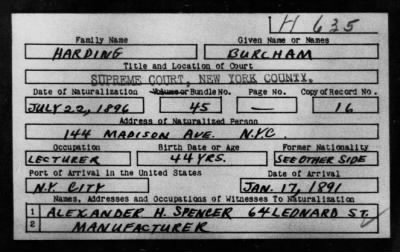 H 635
Family Name Given Name or Names
HARDING BURCHAM
Title and Location of Court
SUPREME COURT, NEW YORK COUNTY.
Date of Naturalization Volume or Bundle No. Page No. Copy of Record No.
JULY 22, 1896 45 — 16
Address of Naturalized Person
144 MADISON AVE. N.Y.C.
Occupation Birth Date or Age Former Nationality
LECTURER 44 YRS. SEE OTHER SIDE
Port of Arrival in the United States Date of Arrival
N.Y. CITY JAN. 17, 1891
Names, Addresses and Occupations of Witnesses To Naturalization
1 ALEXANDER H. SPENCER 64 LEONARD ST.
2 MANUFACTURER